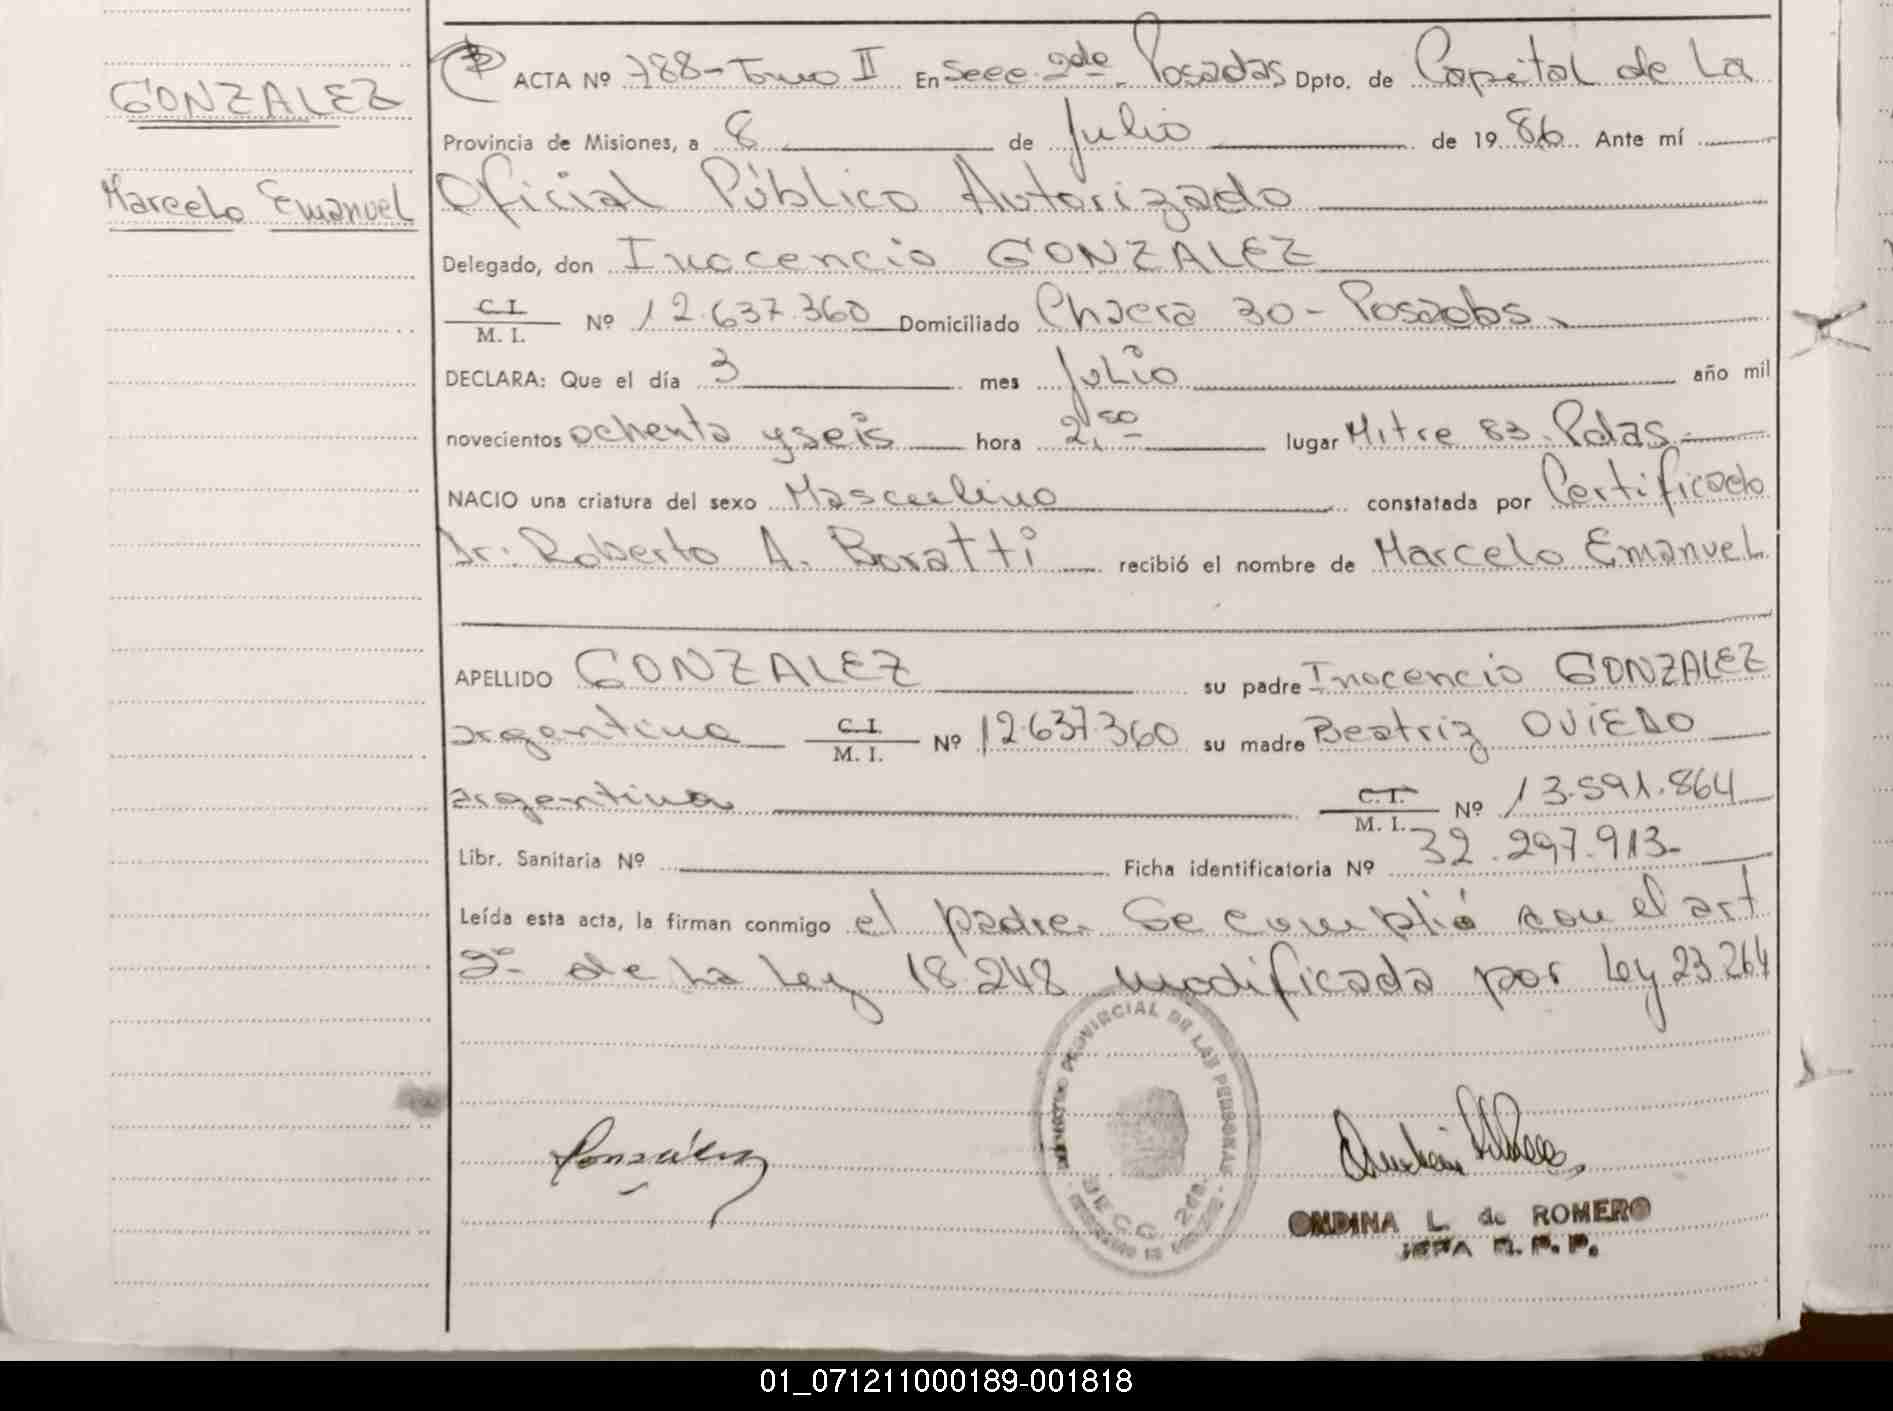 GONZALEZ
Marcelo Emanuel
ACTA Nº 788-Tomo II En Secc. 2da - Posadas Dpto. de Capital de La
Provincia de Misiones, a 8 de Julio de 1986 Ante mí
Oficial Público Autorizado
Delegado, don Inocencio GONZALEZ
C.I.
M. I. Nº 12.637.360 Domiciliado Chacra 30 - Posadas.
DECLARA: Que el día 3 mes Julio año mil
novecientos ochenta y seis hora 2,50 lugar Mitre 83. Pdas.
NACIO una criatura del sexo Masculino constatada por Certificado
Dr: Roberto A. Boratti recibió el nombre de Marcelo Emanuel
APELLIDO GONZALEZ su padre Inocencio GONZALEZ
argentina C.I.
M. I. Nº 12.637.360 su madre Beatriz OVIEDO
argentina C.I.
M. I. Nº 13.591.864
Libr. Sanitaria Nº Ficha identificatoria Nº 32.297.913-
Leída esta acta, la firman conmigo el padre. Se cumplió con el art
2º- de la Ley 18.248 modificada por Ley 23.264
PROVINCIAL DE LAS PERSONAS
2da.
González
ONDINA L. de ROMERO
JEFA R. P. P.
01_071211000189-001818